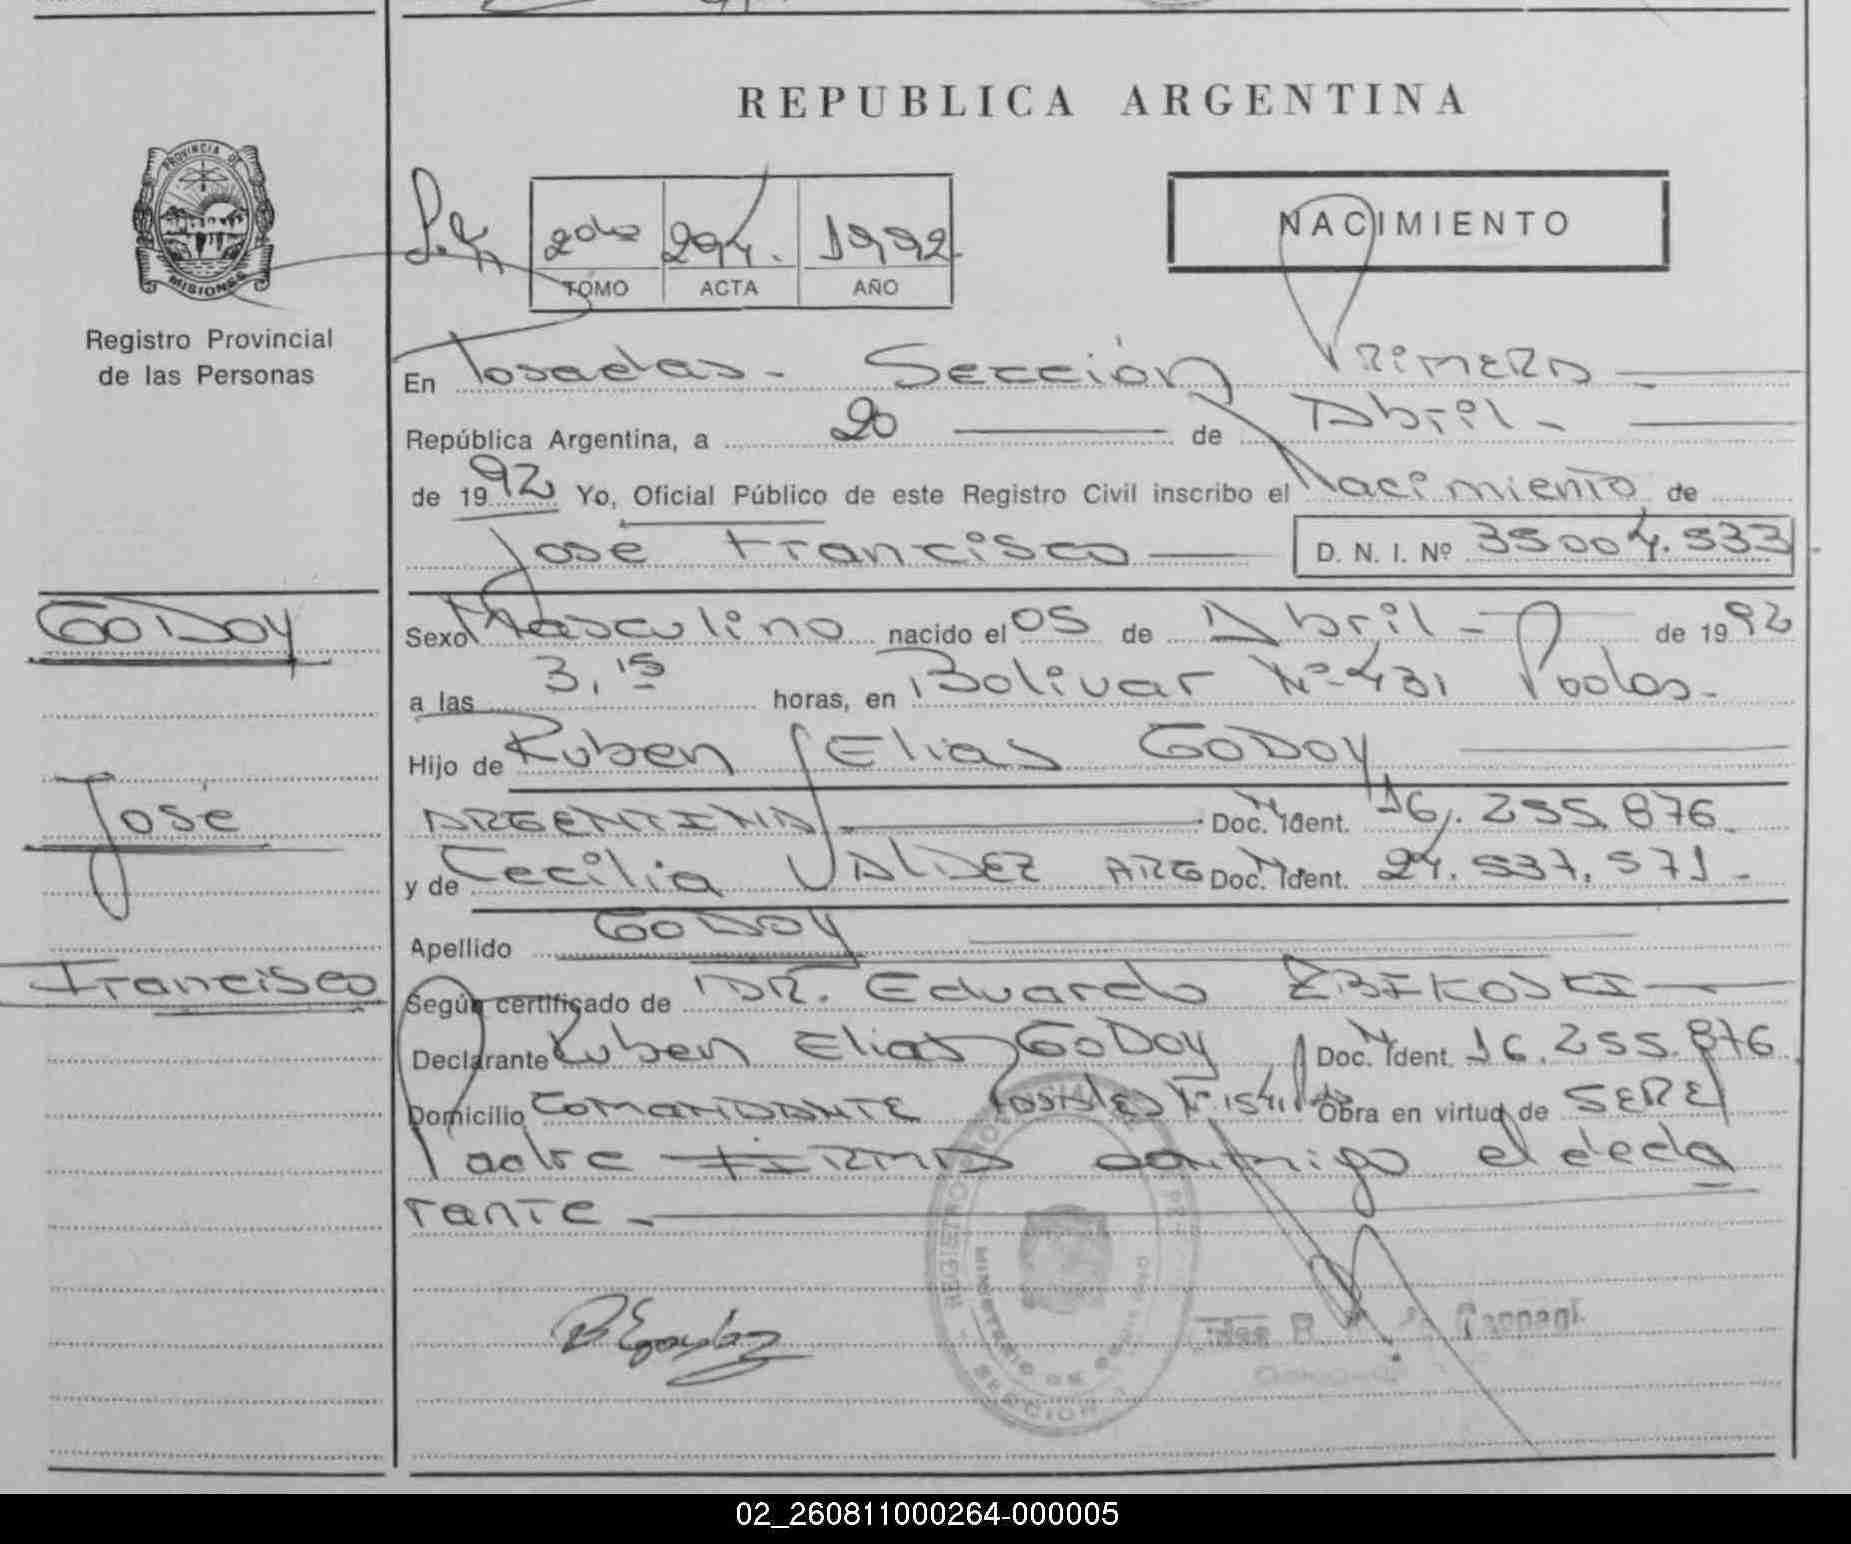 REPUBLICA ARGENTINA
PROVINCIA DE
MISIONES
Registro Provincial
de las Personas
2do 294. 1992.
TOMO ACTA AÑO
NACIMIENTO
En Posadas - Sección Primera
República Argentina, a 20 de Abril -
de 1992 Yo, Oficial Público de este Registro Civil inscribo el Nacimiento de
José Francisco D. N. I. Nº 35004.533
GODOY
Sexo Masculino nacido el 05 de Abril - de 1992
a las 3,15 horas, en Bolivar Nº 431 Posdas -
Hijo de Ruben Elias GODOY
José
ARGENTINA Doc. Ident. 16.255.876
y de Cecilia VALDEZ ARG Doc. Ident. 24.537.571 -
Apellido GODOY
Francisco
Según certificado de DR. Eduardo
Declarante Ruben Elias GODOY Doc. Ident. 16.255.876
Domicilio COMANDANTE Obra en virtud de SER El
Padre FIRMA conmigo el decla
rante -
REGISTRO
MINISTERIO DE
SECCION
02_260811000264-000005